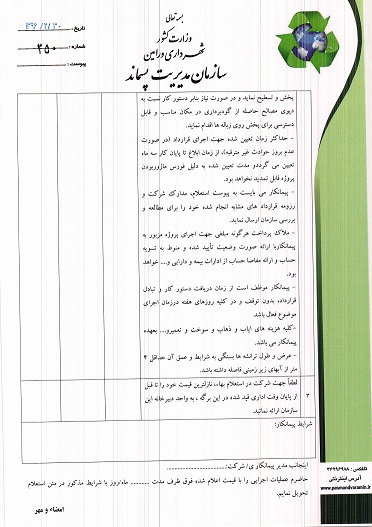 بسمه تعالی
وزارت کشور
شهرداری ورامین
سازمان مدیریت پسماند
تاریخ: ۱۳۹۶/۲/۳۰
شماره: ۲۵۰
پیوست:
پخش و تسطیح نماید و در صورت نیاز بنابر دستور کار نسبت به
دپوی مصالح حاصله از گودبرداری در مکان مناسب و قابل
دسترسی برای پخش روی زباله ها اقدام نماید.
- حداکثر زمان تعیین شده جهت اجرای قرارداد (در صورت
عدم بروز حوادث غیر مترقبه)، از زمان ابلاغ تا پایان کار سه ماه
تعیین می گردد و مدت تعیین شده به دلیل فورس ماژور بودن
پروژه قابل تمدید نخواهد بود.
- پیمانکار می بایست به پیوست استعلام، مدارک شرکت و
رزومه قرارداد های مشابه انجام شده خود را برای مطالعه و
بررسی سازمان ارسال نماید.
- ملاک پرداخت هرگونه مبلغی جهت اجرای پروژه مزبور به
پیمانکار با ارائه صورت وضعیت تأیید شده و منوط به تسویه
حساب و ارائه مفاصا حساب از ادارات بیمه و دارایی و... خواهد
بود.
- پیمانکار موظف است از زمان دریافت دستور کار و تبادل
قرارداد، بدون توقف و در کلیه روزهای هفته درزمان اجرای
موضوع فعال باشد
-کلیه هزینه های ایاب و ذهاب و سوخت و تعمیرو... بعهده
پیمانکار می باشد.
- عرض و طول ترانشه ها بستگی به شرایط و عمق آن حداقل ۴
متر از آبهای زیر زمینی فاصله داشته باشد.
۳
لطفاً جهت شرکت در استعلام بهاء، نازلترین قیمت خود را تا قبل
از پایان وقت اداری قید شده در این برگه ، به واحد دبیرخانه این
سازمان ارائه نمائید.
شرایط پیمانکار:
اینجانب مدیر پیمانکاری/شرکت:
حاضرم عملیات اجرایی را با قیمت اعلام شده فوق ظرف مدت ............ ماه/روز با شرایط مذکور در متن استعلام
تحویل نمایم.
امضاء و مهر
تلفکس: ۳۶۲۹۶۹۸۸
آدرس اینترنتی
www.pasmandvaramin.ir